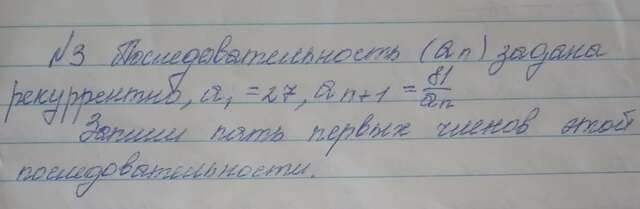 №3 Последовательность (an) задана
рекуррентно, a₁ = 27, an+1 = 81/an
Запиши пять первых членов этой
последовательности.